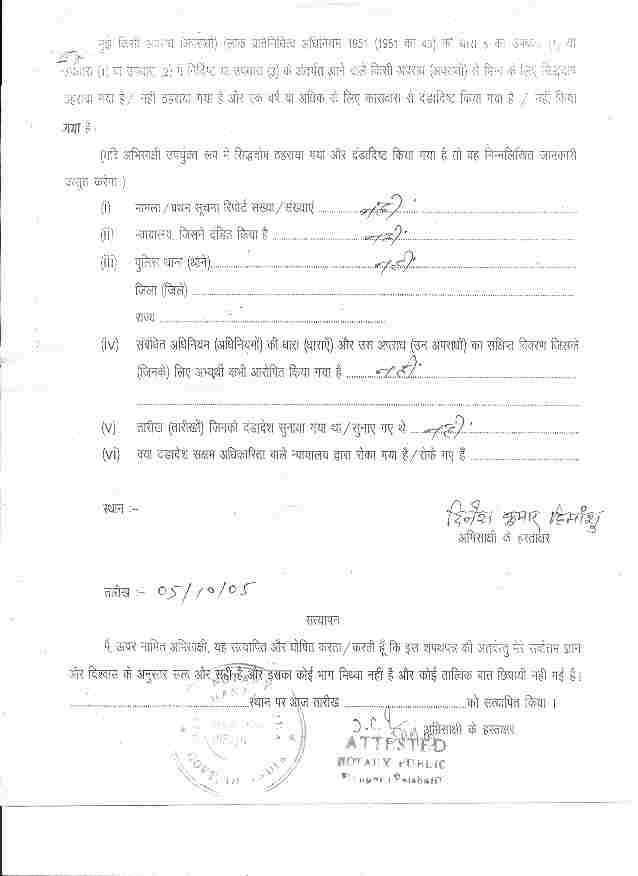 मुझे किसी अपराध (अपराधों) (लोक प्रतिनिधित्व अधिनियम 1951 (1951 का 43) की धारा 8 की उपधारा (1) या
उपधारा (1) या उपधारा (2) में निर्दिष्ट या उपधारा (3) के अंतर्गत आने वाले किसी अपराध (अपराधों) से भिन्न के लिए सिद्धदोष
ठहराया गया है / नहीं ठहराया गया है और एक वर्ष या अधिक के लिए कारावास से दंडादिष्ट किया गया है / नहीं किया
गया है।
(यदि अभिसाक्षी उपर्युक्त रूप में सिद्धदोष ठहराया गया और दंडादिष्ट किया गया है तो वह निम्नलिखित जानकारी
प्रस्तुत करेगा:)
(i) मामला / प्रथम सूचना रिपोर्ट संख्या / संख्याएं ..... नहीं
(ii) न्यायालय, जिसने दंडित किया है ..... नहीं
(iii) पुलिस थाना (थाने) ..... नहीं
जिला (जिले) .....
राज्य .....
(iv) संबंधित अधिनियम (अधिनियमों) की धारा (धाराएँ) और उस अपराध (उन अपराधों) का संक्षिप्त विवरण जिसके
(जिनके) लिए अभ्यर्थी कभी आरोपित किया गया है ..... नहीं
(v) तारीख (तारीखें) जिनको दंडादेश सुनाया गया था / सुनाए गए थे ..... नहीं
(vi) क्या दंडादेश सक्षम अधिकारिता वाले न्यायालय द्वारा रोका गया है / रोके गए हैं .....
स्थान :-
दिनेश कुमार हिमांशु
अभिसाक्षी के हस्ताक्षर
तारीख :- 05/10/05
सत्यापन
मैं, ऊपर नामित अभिसाक्षी, यह सत्यापित और घोषित करता / करती हूँ कि इस शपथपत्र की अंतर्वस्तु मेरे सर्वोत्तम ज्ञान
और विश्वास के अनुसार सत्य और सही है और इसका कोई भाग मिथ्या नहीं है और कोई तात्विक बात छिपायी नहीं गई है।
..... स्थान पर आज तारीख ..... को सत्यापित किया ।
अभिसाक्षी के हस्ताक्षर
ATTESTED
NOTARY PUBLIC